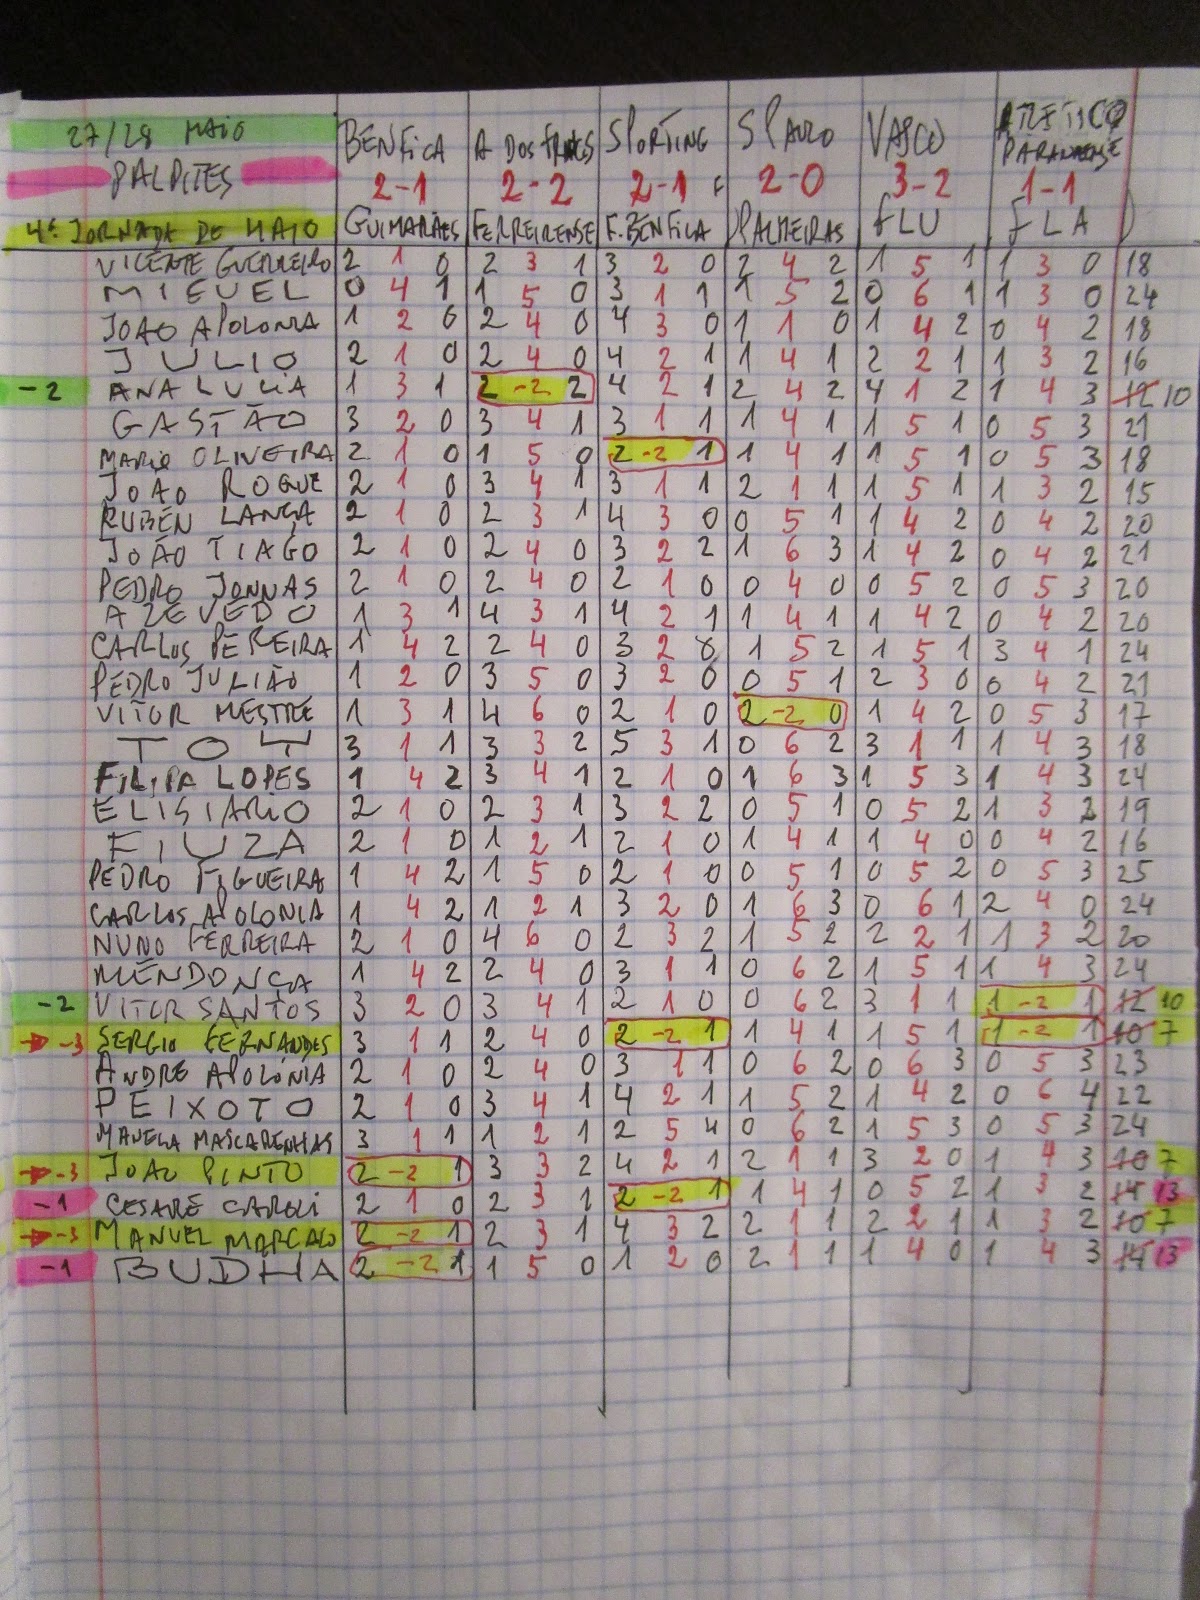 27/28 MAIO BENFICA A DOS FRANCOS SPORTING S PAULO VASCO ATLETICO
PALPITES PARANAENSE
2-1 2-2 2-1 F 2-0 3-2 1-1
4ª JORNADA DE MAIO GUIMARÃES FERREIRENSE F. BENFICA PALMEIRAS FLU FLA
VICENTE GUERREIRO 2 1 0 2 3 1 3 2 0 2 4 2 1 5 1 1 3 0 18
MIGUEL 0 4 1 1 5 0 3 1 1 1 5 2 0 6 1 1 3 0 24
JOAO APOLONIA 1 2 0 2 4 0 4 3 0 1 1 0 1 4 2 0 4 2 18
JULIO 2 1 0 2 4 0 4 2 1 1 4 1 2 2 1 1 3 2 16
-2 ANA LUCIA 1 3 1 2 -2 2 4 2 1 2 4 2 4 1 2 1 4 3 12 10
GASTÃO 3 2 0 3 4 1 3 1 1 1 4 1 1 5 1 0 5 3 21
MARIO OLIVEIRA 2 1 0 1 5 0 2 -2 1 1 4 1 1 5 1 0 5 3 18
JOÃO ROGUE 2 1 0 3 4 1 3 1 1 2 1 1 1 5 1 1 3 2 15
RUBÉN LANÇA 2 1 0 2 3 1 4 3 0 0 5 1 1 4 2 0 4 2 20
JOÃO TIAGO 2 1 0 2 4 0 3 2 2 1 6 3 1 4 2 0 4 2 21
PEDRO JONNAS 2 1 0 2 4 0 2 1 0 0 4 0 0 5 2 0 5 3 20
AZEVEDO 1 3 1 4 3 1 4 2 1 1 4 1 1 4 2 0 4 2 20
CARLOS PEREIRA 1 4 2 2 4 0 3 2 0 1 5 2 1 5 1 3 4 1 24
PEDRO JULIÃO 1 2 0 3 5 0 3 2 0 0 5 1 2 3 0 0 4 2 21
VITOR MESTRE 1 3 1 4 6 0 2 1 0 2 -2 0 1 4 2 0 5 3 17
TOT 3 1 1 3 3 2 5 3 1 0 6 2 3 1 1 1 4 3 18
FILIPA LOPES 1 4 2 3 4 1 2 1 0 1 6 3 1 5 3 1 4 3 24
ELISIARIO 2 1 0 2 3 1 3 2 2 0 5 1 0 5 2 1 3 2 19
FIUZA 2 1 0 1 2 1 2 1 0 1 4 1 1 4 0 0 4 2 16
PEDRO FIGUEIRA 1 4 2 1 5 0 2 1 0 0 5 1 0 5 2 0 5 3 25
CARLOS APOLONIA 1 4 2 1 2 1 3 2 0 1 6 3 0 6 1 2 4 0 24
NUNO FERREIRA 2 1 0 4 6 0 2 3 2 1 5 2 2 2 1 1 3 2 20
MENDONÇA 1 4 2 2 4 0 3 1 1 0 6 2 1 5 1 1 4 3 24
-2 VITOR SANTOS 3 2 0 3 4 1 2 1 0 0 6 2 3 1 1 1 -2 1 12 10
-3 SERGIO FERNANDES 3 1 1 2 4 0 2 -2 1 1 4 1 1 5 1 1 -2 1 10 7
ANDRE APOLÓNIA 2 1 0 2 4 0 3 1 1 0 6 2 0 6 3 0 5 3 23
PEIXOTO 2 1 0 3 4 1 4 2 1 1 5 2 1 4 2 0 6 4 22
MANUELA MASCARENHAS 3 1 1 1 2 1 2 5 4 0 6 2 1 5 3 0 5 3 24
-3 JOAO PINTO 2 -2 1 3 3 2 4 2 1 2 1 1 3 2 0 1 4 3 10 7
-1 CESARE CAROLI 2 1 0 2 3 1 2 -2 1 1 4 1 0 5 2 1 3 2 14 13
-3 MANUEL MARCALO 2 -2 1 2 3 1 4 3 2 2 1 1 2 2 1 1 3 2 10 7
-1 BUDHA 2 -2 1 1 5 0 1 2 0 2 1 1 1 4 0 1 4 3 14 13